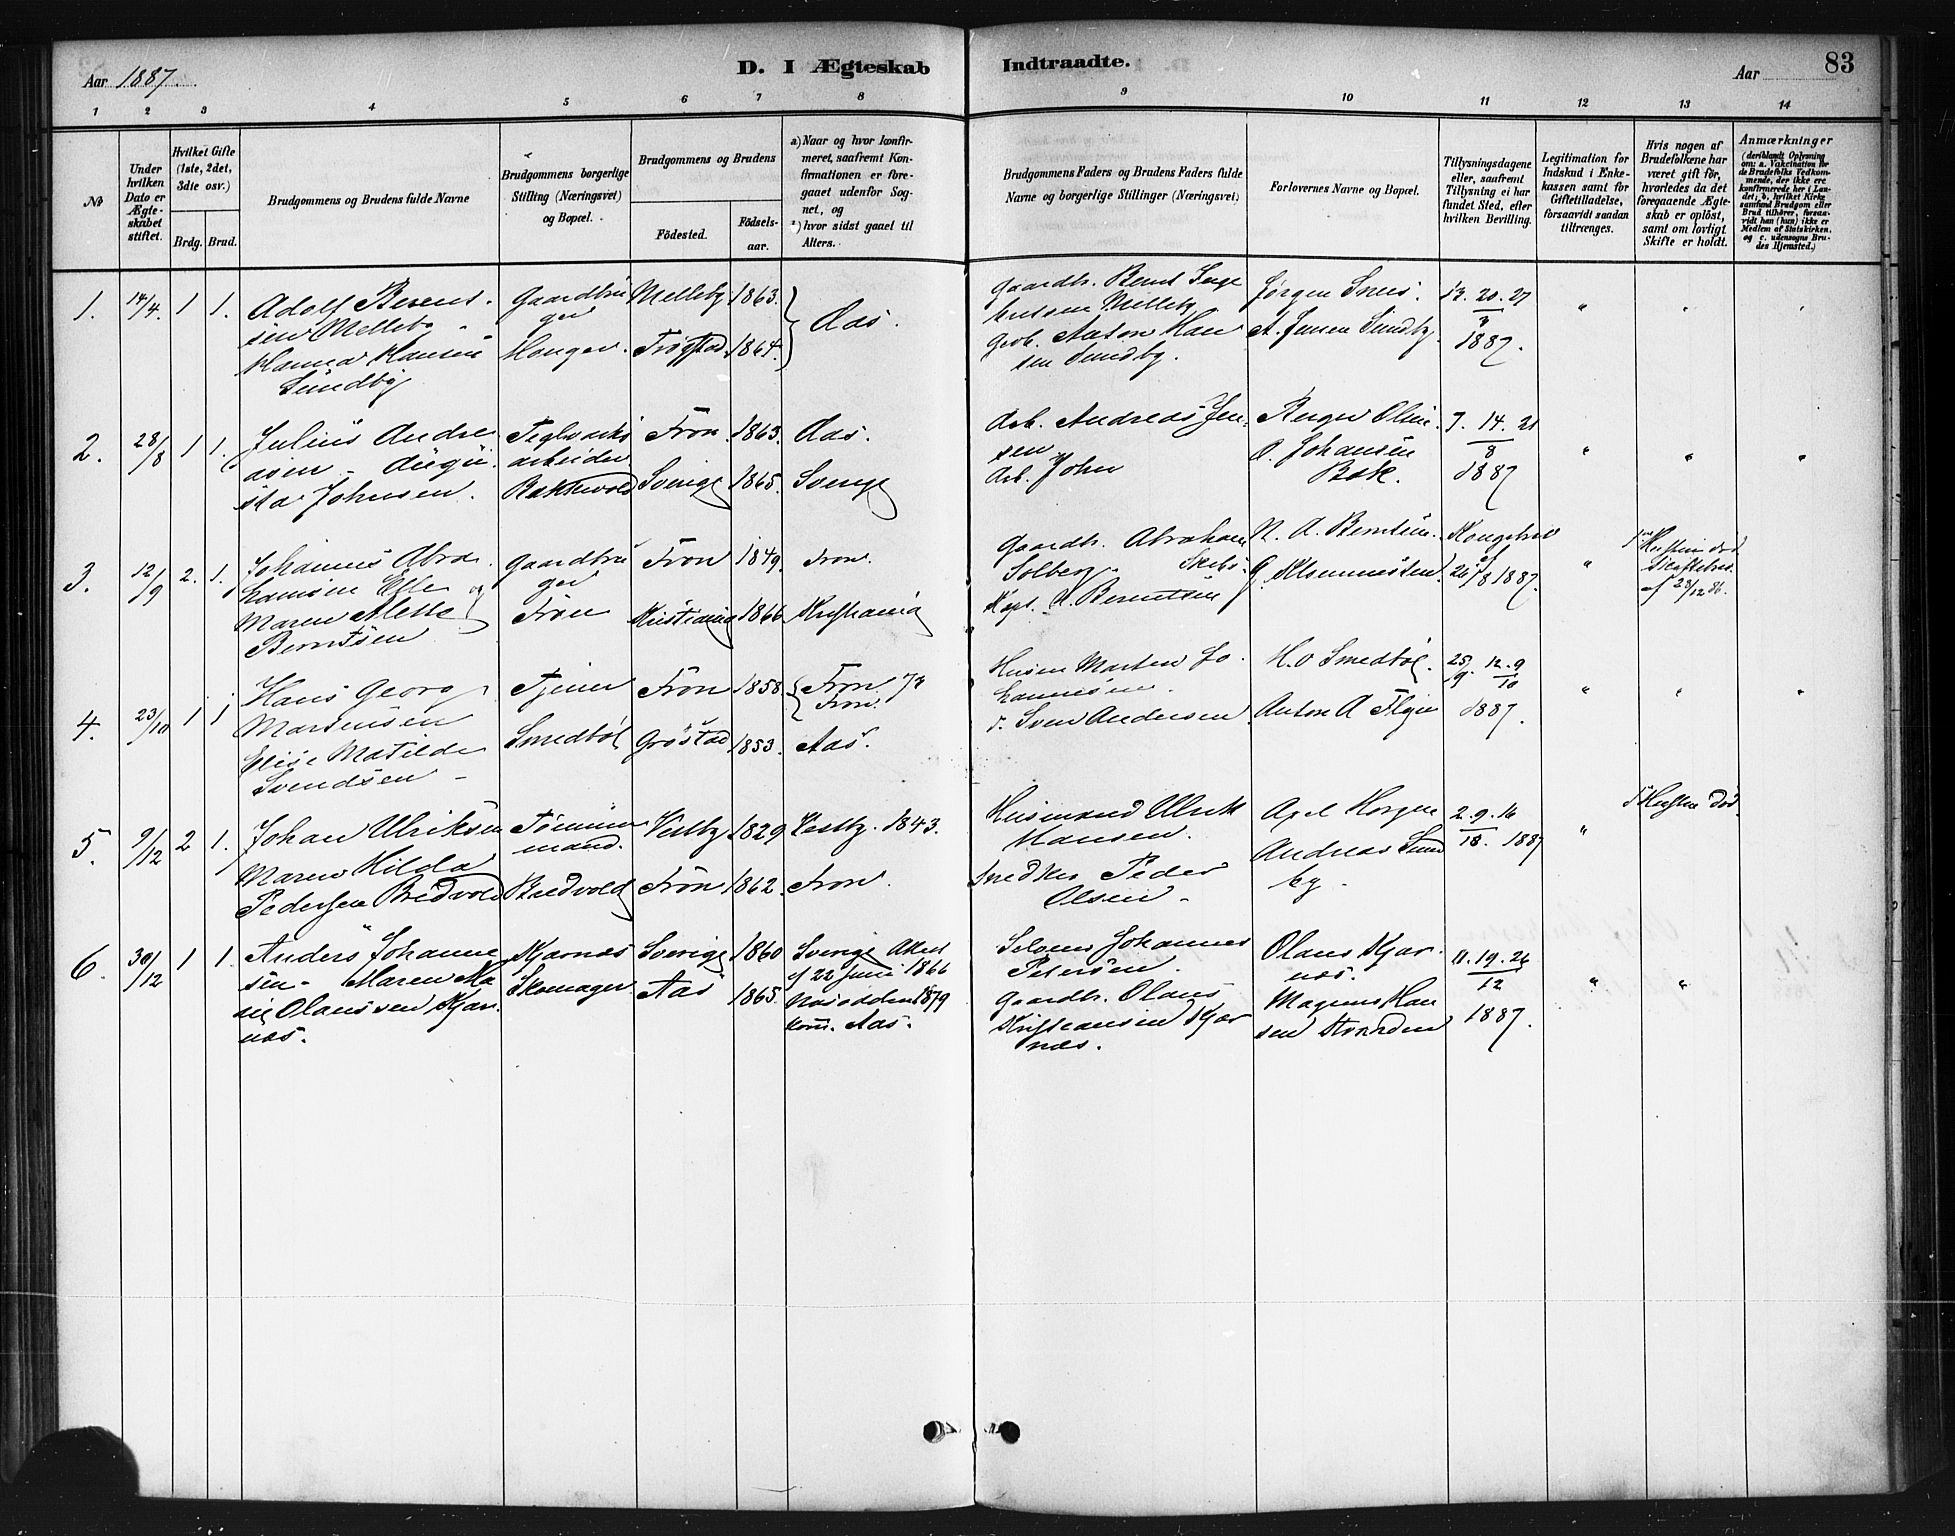 Aar 1887.
D. I Ægteskab Indtraadte.
Aar
83
1 2 3 4 5 6 7 8 9 10 11 12 13 14
No
Under hvilken Dato er Ægteskabet stiftet.
Hvilket Gifte (1ste, 2det, 3die osv.)
Brdg. Brud.
Brudgommens og Brudens fulde Navne
Brudgommens borgerlige Stilling (Næringsvei) og Bopæl.
Brudgommens og Brudens
Födested.
Födselsaar.
a) Naar og hvor konfirmeret, saafremt Konfirmationen er foregaaet udenfor Sognet, og
b) hvor sidst gaaet til Alters.
Brudgommens Faders og Brudens Faders fulde Navne og borgerlige Stillinger (Næringsvei)
Forlovernes Navne og Bopæl.
Tillysningsdagene eller, saafremt Tillysning ei har fundet Sted, efter hvilken Bevilling.
Legitimation for Indskud i Enkekassen samt for Giftetilladelse, forsaavidt saadan tiltrænges.
Hvis nogen af Brudefolkene har været gift för, hvorledes da det foregaaende Ægteskab er oplöst, samt om lovligt Skifte er holdt.
Anmærkninger
(deriblandt Oplysning om: a. Vakcination for de Brudefolks Vedkommende, der ikke ere konfirmerede her i Landet; b. hvilket Kirkesamfund Brudgom eller Brud tilhörer, forsaavidt han (hun) ikke er Medlem af Statskirken, og c. udensogns Brudes Hjemsted.)
1. 14/4. 1 1.
Adolf Berent-
sen Melleby
Hanna Hansen
Sundby
Gaardbru
ger
Melleby 1863.
Trøgstad 1864.
Aas.
Gaardbr. Bernt
Melleby
Anton Han
sen Sundby.
Jørgen
A. Jensen Sundby.
13. 20. 27
1887.
2. 28/8 1 1.
Julius Andre
asen - Augu
sta Johnsen.
Teglværks
arbeider
Frön 1863. Aas.
Sverige 1865. Sverige
Arb. Andreas Jen
sen
Arb. John
Birger Olsen
O. Johansen
Bak.
7. 14. 21
8
1887
3. 12/9 2. 1.
Johannes Abra
hamsen
Maren Alette
Berntsen
og
Gaardbru
ger
Frön
Frön 1849. Frön.
Kristiania 1866 Kristiania
Gaardbr. Abraham
Solberg.
Kapt. Berentsen
N. A. Berntsen.
26/8 1887.
Hustru død
Skiftebrev
af 28/12 86.
4. 23/10 1 1
Hans Georg
Martinsen
Elise Matilde
Svendsen
Tjener
Smedböl
Frön 1858. Frön. 74
Frön.
Gröstad 1853. Aas.
Husm Marten Jo
hannesen.
Sven Andersen
H. O Smedböl.
Anton A
25/9 12. 9/10
1887.
5. 9/12 2 1.
Johan Ulriksen
Maren Hilda
Pedersen Bredvold
Tömmer
mand.
Bredvold
Vestby 1829 Vestby. 1843.
Frön 1862. Frön.
Husmand Ulrik
Hansen.
Snedker Peder
Olsen
Axel Horgen
Andreas Sund
by
2. 9. 16
1887
Hustru död.
6. 30/12 1 1.
Anders Johanne
sen - Maren Ma
rie Olaussen Kjær
næs.
Kjærnæs
Skomager
Sverige 1860
Aas 1865.
Sverige Attest
af 22 Juni 1866
Næsodden 1879
Kom. Aas.
Selveier Johannes
Petersen.
Gaardbr. Olaus
Kristiansen Kjær
næs.
Olaus Kjær
næs.
Magnus Han
sen Stranden
11. 19. 26
12
1887.